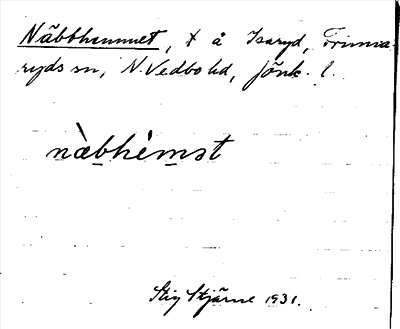 Näbbhemmet, t å Isaryd, Frinna-
ryds sn, N. Vedbo hd, Jönk. l.
nàbhèmst
Stig Stjärne 1931.